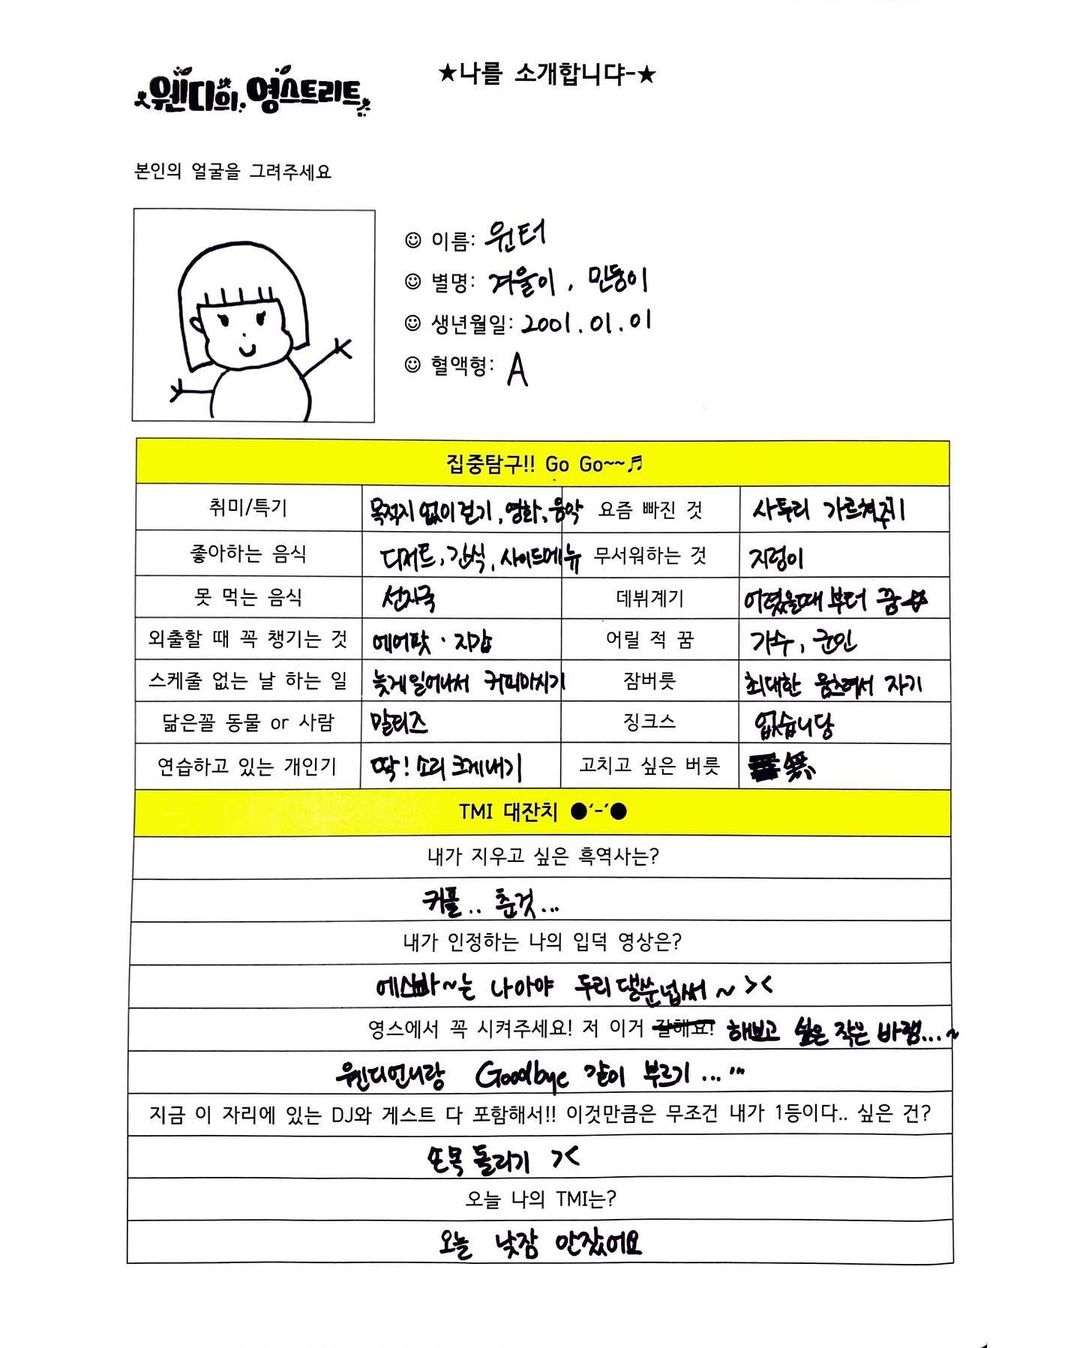 ★나를 소개합니댜-★
웬디의 영스트리트
본인의 얼굴을 그려주세요
☺ 이름: 윈터
☺ 별명: 겨울이, 민둥이
☺ 생년월일: 2001.01.01
☺ 혈액형: A
집중탐구!! Go Go~~♬
취미/특기 목적지 없이 걷기, 영화, 음악 요즘 빠진 것 사투리 가르쳐주기
좋아하는 음식 디저트, 간식, 사이드메뉴 무서워하는 것 지렁이
못 먹는 음식 선지국 데뷔계기 어렸을때 부터 꿈☆
외출할 때 꼭 챙기는 것 에어팟 · 지갑 어릴 적 꿈 가수, 군인
스케줄 없는 날 하는 일 늦게 일어나서 커피마시기 잠버릇 최대한 움츠려서 자기
닮은꼴 동물 or 사람 말티즈 징크스 없습니당
연습하고 있는 개인기 딱! 소리 크게 내기 고치고 싶은 버릇
TMI 대잔치 ●'-'●
내가 지우고 싶은 흑역사는?
커플.. 춘것...
내가 인정하는 나의 입덕 영상은?
에스빠~는 나아야 두리 댕쑨넙써~ ><
영스에서 꼭 시켜주세요! 저 이거 잘해요! 해보고 싶은 작은 바램...~
웬디언니랑 Goodbye 같이 부르기... ...
지금 이 자리에 있는 DJ와 게스트 다 포함해서!! 이것만큼은 무조건 내가 1등이다.. 싶은 건?
손목 돌리기 ><
오늘 나의 TMI는?
오늘 낮잠 안잤어요